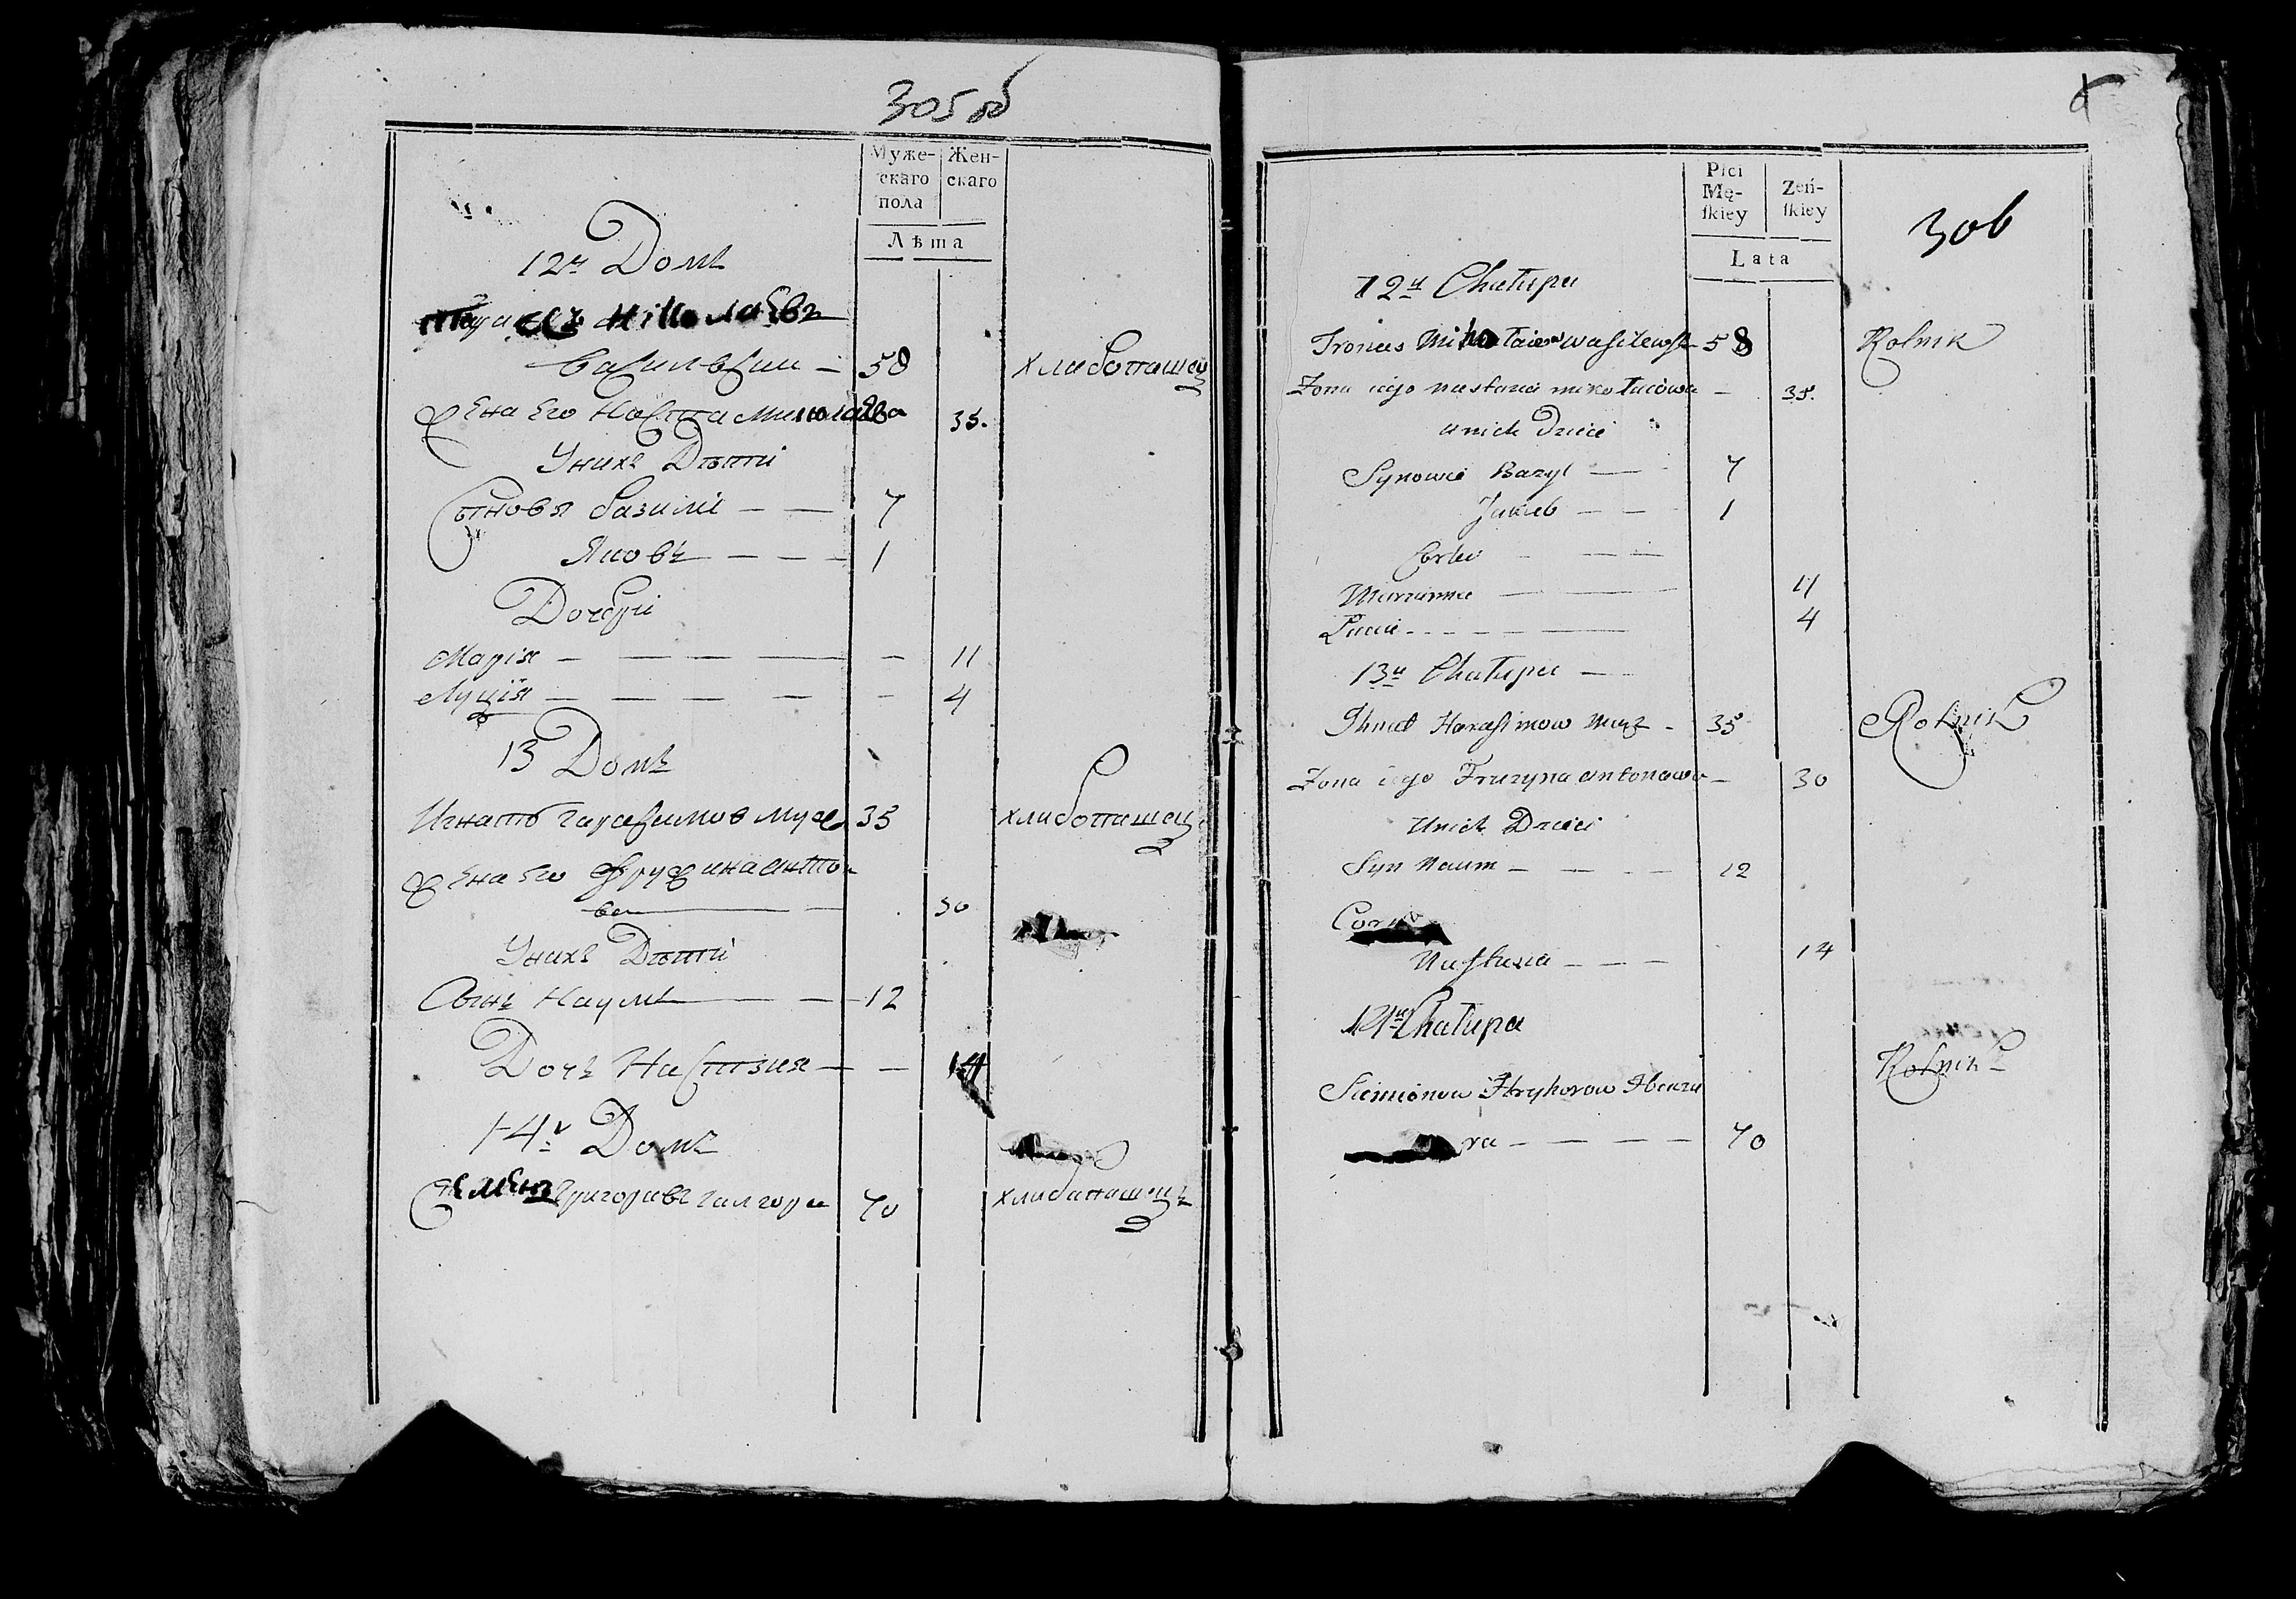 305 об
Муже-
скаго
пола
Жен-
скаго
Лѣта
12й Домъ
Николаевъ
Василевски — 58
хлебопашец
Жена Его Настя Миколаева 35.
Унихъ Дѣтти
Сыновя базили — — 7
Яковъ — — — 1
Дочери
Мария — — — — — 11
Луция — — — — — — 4
13 Домъ
Игнатъ Гарасимов Муха 35
хлибопашец
Жена Его Фружина Анто-
ва — — 30
Унихъ Дѣтти
Сынъ Наумъ — — 12
Дочъ Настазия — — 14
14й Домъ
Семенъ Григоривъ 70
хлибапашецъ
Płci
Mę-
skiey
Zeń-
skiey
Lata
306
12a Chałupa
Mikołaiew Wasilewsk 58
Rolnik
Zona iego Nastazia Mikołaiowa — 35.
unich Dzieci
Synowie Bazyl — 7
Jakub — — 1
Corki — — —
Marianna — — 11
Lucia - - - - — 4
13a Chałupa —
Ihnat Harasimow - 35
Rolnik
Zona iego Fruzyna Antonowa — 30
Unich Dzieci
Syn Naum — — - — 12
Cor
Nastazia — - — 14
14a Chałupa
Rolnik
Siemionow Hryhorow
ra — — — — — 70